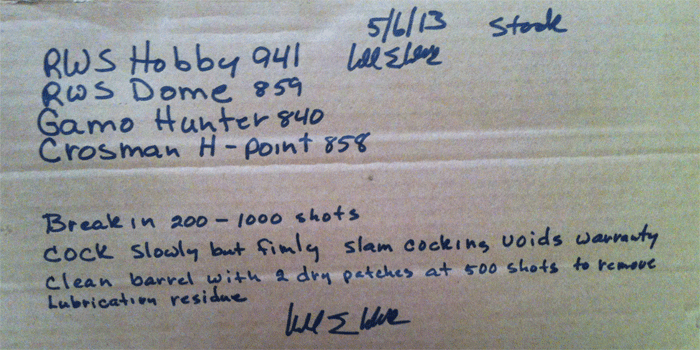 5/6/13 Stock
RWS Hobby 941
RWS Dome 859
Gamo Hunter 840
Crosman H-Point 858
Break in 200-1000 shots
Cock slowly but fimly slam cocking voids warranty
Clean barrel with 2 dry patches at 500 shots to remove
Lubrication residue